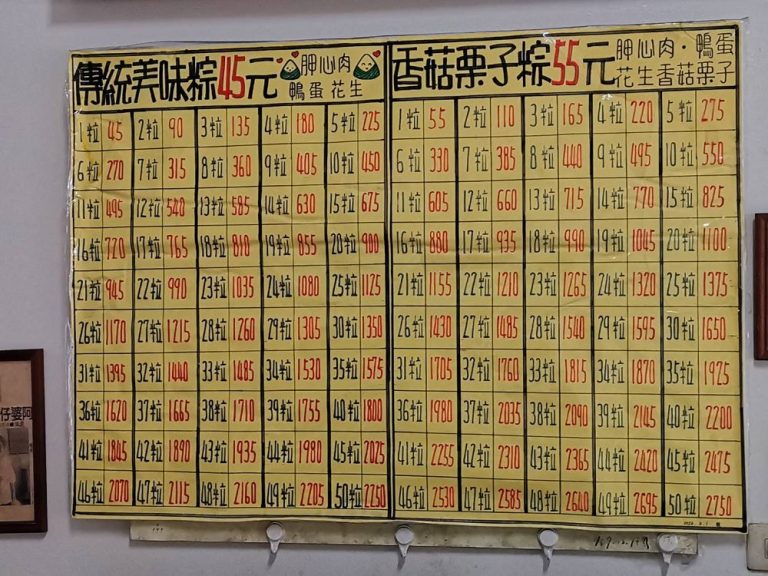 傳統美味粽45元 胛心肉
鴨蛋 花生
1粒 45 2粒 90 3粒 135 4粒 180 5粒 225
6粒 270 7粒 315 8粒 360 9粒 405 10粒 450
11粒 495 12粒 540 13粒 585 14粒 630 15粒 675
16粒 720 17粒 765 18粒 810 19粒 855 20粒 900
21粒 945 22粒 990 23粒 1035 24粒 1080 25粒 1125
26粒 1170 27粒 1215 28粒 1260 29粒 1305 30粒 1350
31粒 1395 32粒 1440 33粒 1485 34粒 1530 35粒 1575
36粒 1620 37粒 1665 38粒 1710 39粒 1755 40粒 1800
41粒 1845 42粒 1890 43粒 1935 44粒 1980 45粒 2025
46粒 2070 47粒 2115 48粒 2160 49粒 2205 50粒 2250
香菇栗子粽55元 胛心肉・鴨蛋
花生香菇栗子
1粒 55 2粒 110 3粒 165 4粒 220 5粒 275
6粒 330 7粒 385 8粒 440 9粒 495 10粒 550
11粒 605 12粒 660 13粒 715 14粒 770 15粒 825
16粒 880 17粒 935 18粒 990 19粒 1045 20粒 1100
21粒 1155 22粒 1210 23粒 1265 24粒 1320 25粒 1375
26粒 1430 27粒 1485 28粒 1540 29粒 1595 30粒 1650
31粒 1705 32粒 1760 33粒 1815 34粒 1870 35粒 1925
36粒 1980 37粒 2035 38粒 2090 39粒 2145 40粒 2200
41粒 2255 42粒 2310 43粒 2365 44粒 2420 45粒 2475
46粒 2530 47粒 2585 48粒 2640 49粒 2695 50粒 2750
仔婆阿